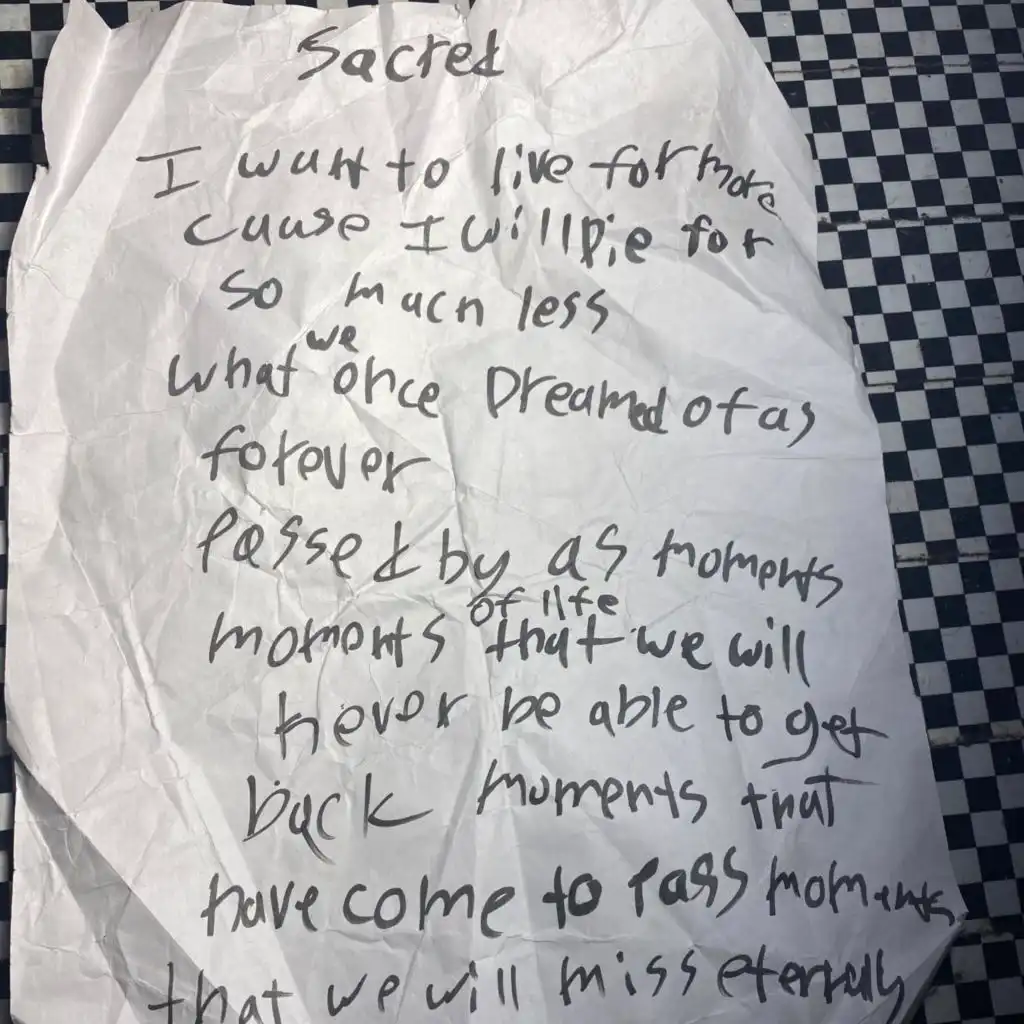 Sacred
I want to live for more
cause I will Die for
so much less
what we once Dreamed of as
forever
Passed by as moments
moments of life that we will
never be able to get
back moments that
have come to Pass moments
that we will miss eternally